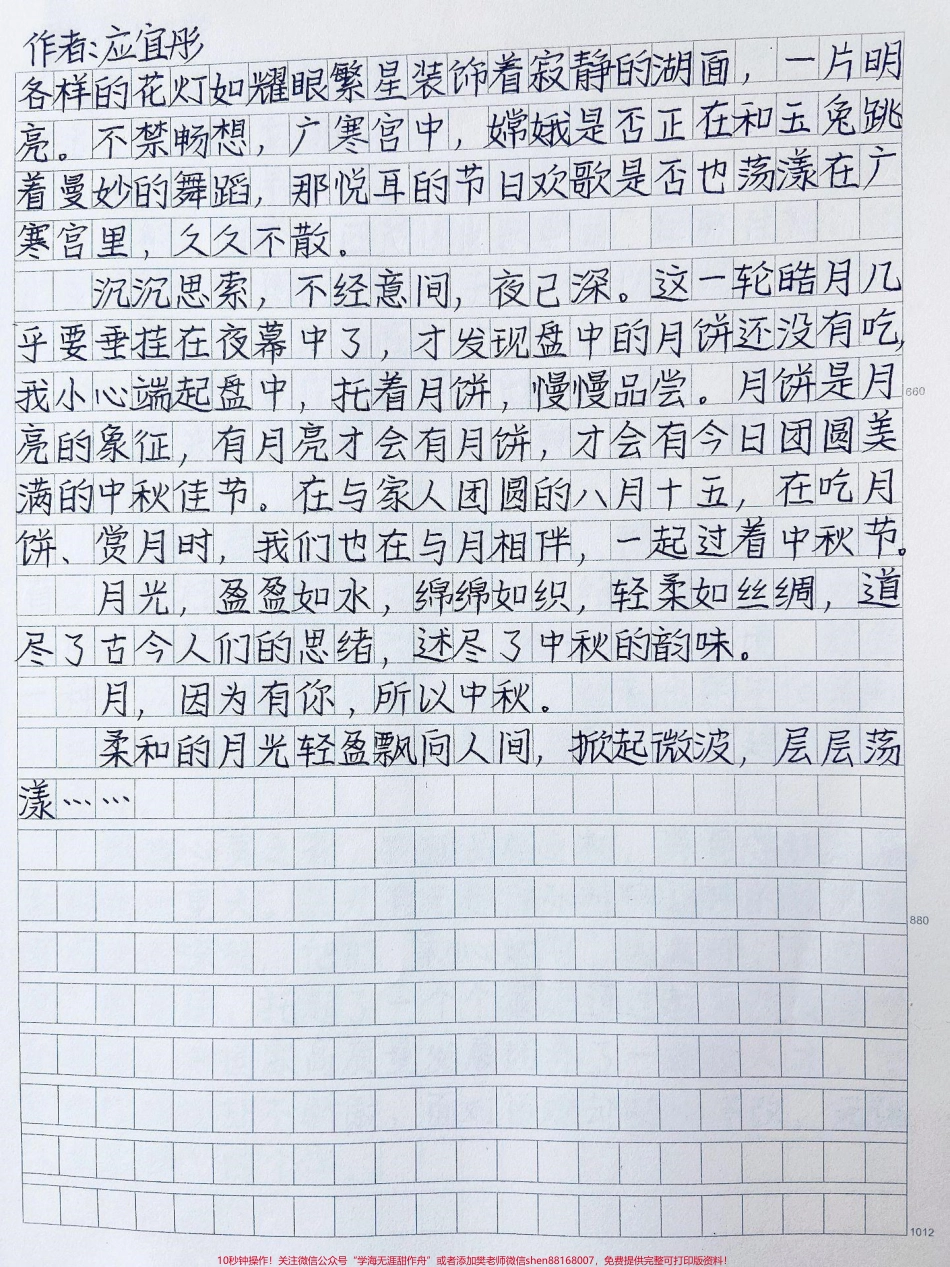 作者:应宜彤
各样的花灯如耀眼繁星装饰着寂静的湖面，一片明
亮。不禁畅想，广寒宫中，嫦娥是否正在和玉兔跳
着曼妙的舞蹈，那悦耳的节日欢歌是否也荡漾在广
寒宫里，久久不散。
沉沉思索，不经意间，夜已深。这一轮皓月几
乎要垂挂在夜幕中了，才发现盘中的月饼还没有吃，
我小心端起盘中，托着月饼，慢慢品尝。月饼是月
660
亮的象征，有月亮才会有月饼，才会有今日团圆美
满的中秋佳节。在与家人团圆的八月十五，在吃月
饼、赏月时，我们也在与月相伴，一起过着中秋节。
月光，盈盈如水，绵绵如织，轻柔如丝绸，道
尽了古今人们的思绪，述尽了中秋的韵味。
月，因为有你，所以中秋。
柔和的月光轻盈飘向人间，掀起微波，层层荡
漾……
880
1012
10秒钟操作！关注微信公众号“学海无涯甜作舟”或者添加樊老师微信shen88168007，免费提供完整可打印版资料！